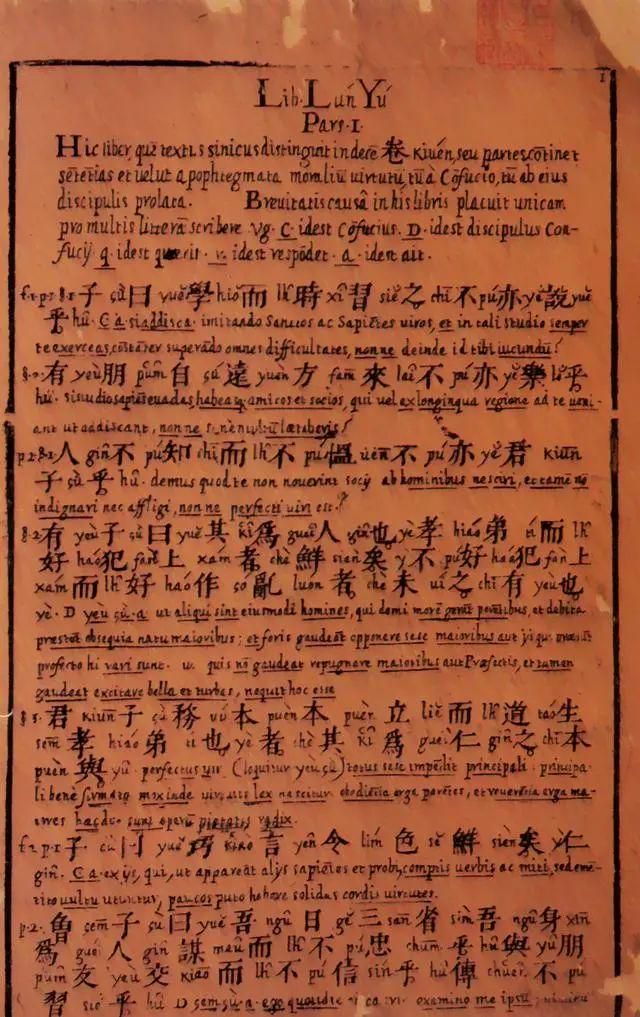 1
Lib. Lun Yú
Pars. I.
Hic liber, quē textus sinicus distinguit in decē 卷 Kiuén, seu partes cōtinet
sētētias et uelut apophtegmata moraliū uirtutū, tū a Cōfucio, tū ab eius
discipulis prolata. Breuitatis causâ in his libris placuit unicam
pro multis litterā scribere Vg. C. idest Cōfucius. D. idest discipulus Con-
fucij q. idest querit. r. idest respōdet. a. idest ait.
f.1. p.1. §.1. 子 çù 曰 yuě 學 hiǒ 而 lh̑ 時 xî 習 siě 之 chī 不 pú 亦 yě 說 yuě
乎 hū. C. a. si addisca. imitando Sanctos ac Sapiētes uiros, et in tali studio semper
te exerceas, cōstāter superādo omnes difficultates, nonne deinde id tibi iucundū?
有 yeù 朋 pûm 自 çú 遠 yuèn 方 fam 來 laî 不 pú 亦 yě 樂 lǒ 乎
hū. si studio sapiēs euadas, habeasq. amicos et socios, qui uel ex longinqua regione ad te ueni-
ant ut addiscant, nonne laetaberis?
人 gin̂ 不 pú 知 chī 而 lh̑ 不 pú 慍 uén 不 pú 亦 yě 君 kiūn
子 çù 乎 hū. demus quod te non nouerint socij ab hominibus nesciri, et tamē nō
indignari nec affligi, nonne perfecti uiri est?
§.2. 有 yeù 子 çù 曰 yuě 其 kî 爲 gueî 人 gin̂ 也 yè 孝 hiáo 弟 tí 而 lh̑
好 háo 犯 fán 上 xám 者 chè 鮮 sièn 矣 y 不 pú 好 háo 犯 fán 上
xám 而 lh̑ 好 háo 作 çó 亂 luón 者 chè 未 uí 之 chī 有 yeù 也
yè. D yeù çù. a ut aliqui sint eiusmodi homines, qui domi morē gerāt parētibus, et debita
prestēt obsequia natu maioribus; et foris gaudeāt opponere sese maioribus aut
profecto hi rari sunt. quis nō gaudeat repugnare maioribus aut Præfectis, et tamen
gaudeat excitare bella et turbas, nequit hoc esse
君 kiūn 子 çù 務 vú 本 puèn 本 puèn 立 liě 而 lh̑ 道 táo 生
sēm 孝 hiáo 弟 tí 也 yè 者 chè 其 kî 爲 gueî 仁 gin̂ 之 chī 本
puèn 與 yû. perfectus uir (loquitur yeù çù) totus sese impēdit principali. principa-
li benè firmato mox inde uirtutis lex nascitur. obediētia erga parētes, et reuerētia erga ma-
iores sunt operū pietatis radix.
子 çù 曰 yuě 巧 kiào 言 yên 令 lím 色 sě 鮮 sièn 矣 y 仁
gin̂. C. a. ex ijs, qui, ut appareāt alijs sapiētes et probi, comptis uerbis ac miti,
uultu utuntur, paucos puto habere solidas cordis uirtutes.
p.2. 曾 sēm 子 çù 曰 yuě 吾 ngû 日 gě 三 sān 省 sìm 吾 ngû 身 xīn
爲 gueí 人 gin̂ 謀 meû 而 lh̑ 不 pú 忠 chūm 乎 hū 與 yù 朋
pûm 友 yeù 交 kiāo 而 lh̑ 不 pú 信 sín 乎 hū 傳 chuên 不 pú
習 siě 乎 hū D sēm çù. a. ego quotidie examino me ipsū